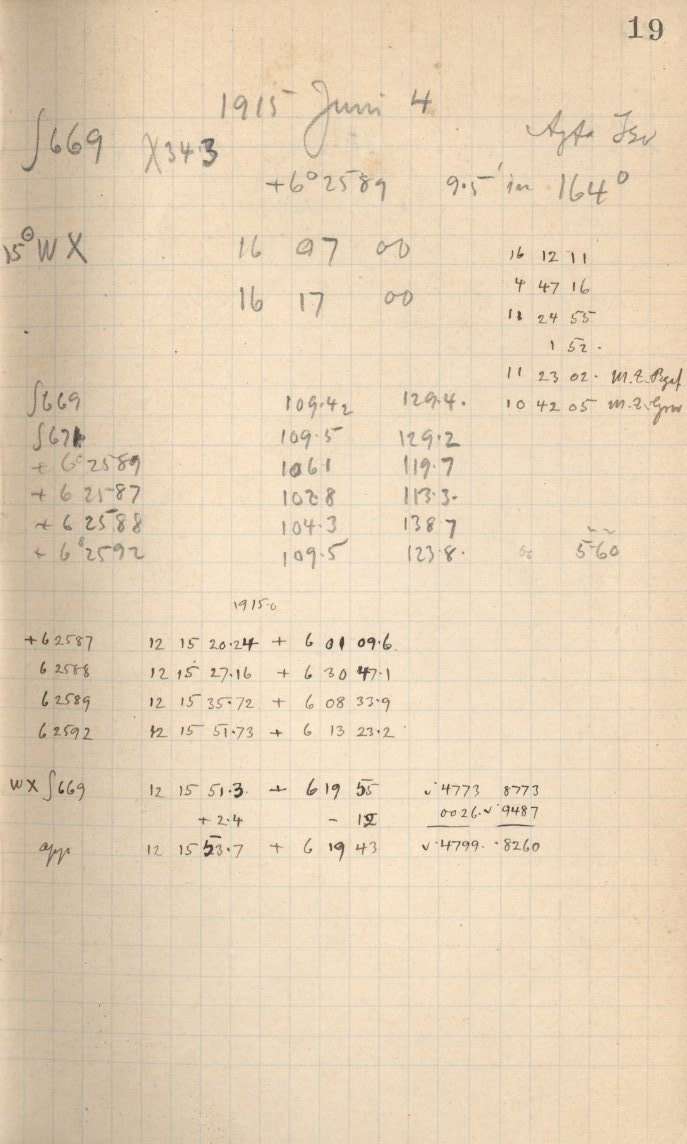 19
1915 Juni 4
∫669 X343
+6° 2589 9.5' in 164°
15° W X 16 07 00
16 17 00
16 12 11
4 47 16
11 24 55
1 52.
11 23 02. M.Z.
10 42 05 M.Z. Grw
∫669 109.42 129.4.
∫671 109.5 129.2
+ 6° 2589 106.1 119.7
+ 6 2587 102.8 113.3.
+ 6 2588 104.3 138.7
+ 6° 2592 109.5 123.8. 560
1915.0
+6 2587 12 15 20.24 + 6 01 09.6
6 2588 12 15 27.16 + 6 30 47.1
6 2589 12 15 35.72 + 6 08 33.9
6 2592 12 15 51.73 + 6 13 23.2
WX ∫669 12 15 51.3 + 6 19 55 √.4773 8773
+2.4 - 12 0026. √.9487
app 12 15 53.7 + 6 19 43 √.4799. .8260